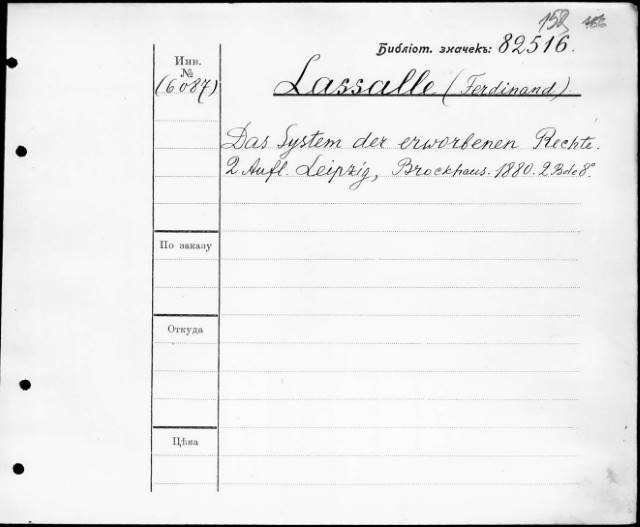 158
Библіот. значекъ: 82516.
Инв.
№
(6087)
Lassalle (Ferdinand)
Das System der erworbenen Rechte.
2 Aufl. Leipzig, Brockhaus. 1880. 2 Bde 8º.
По заказу
Откуда
Цѣна